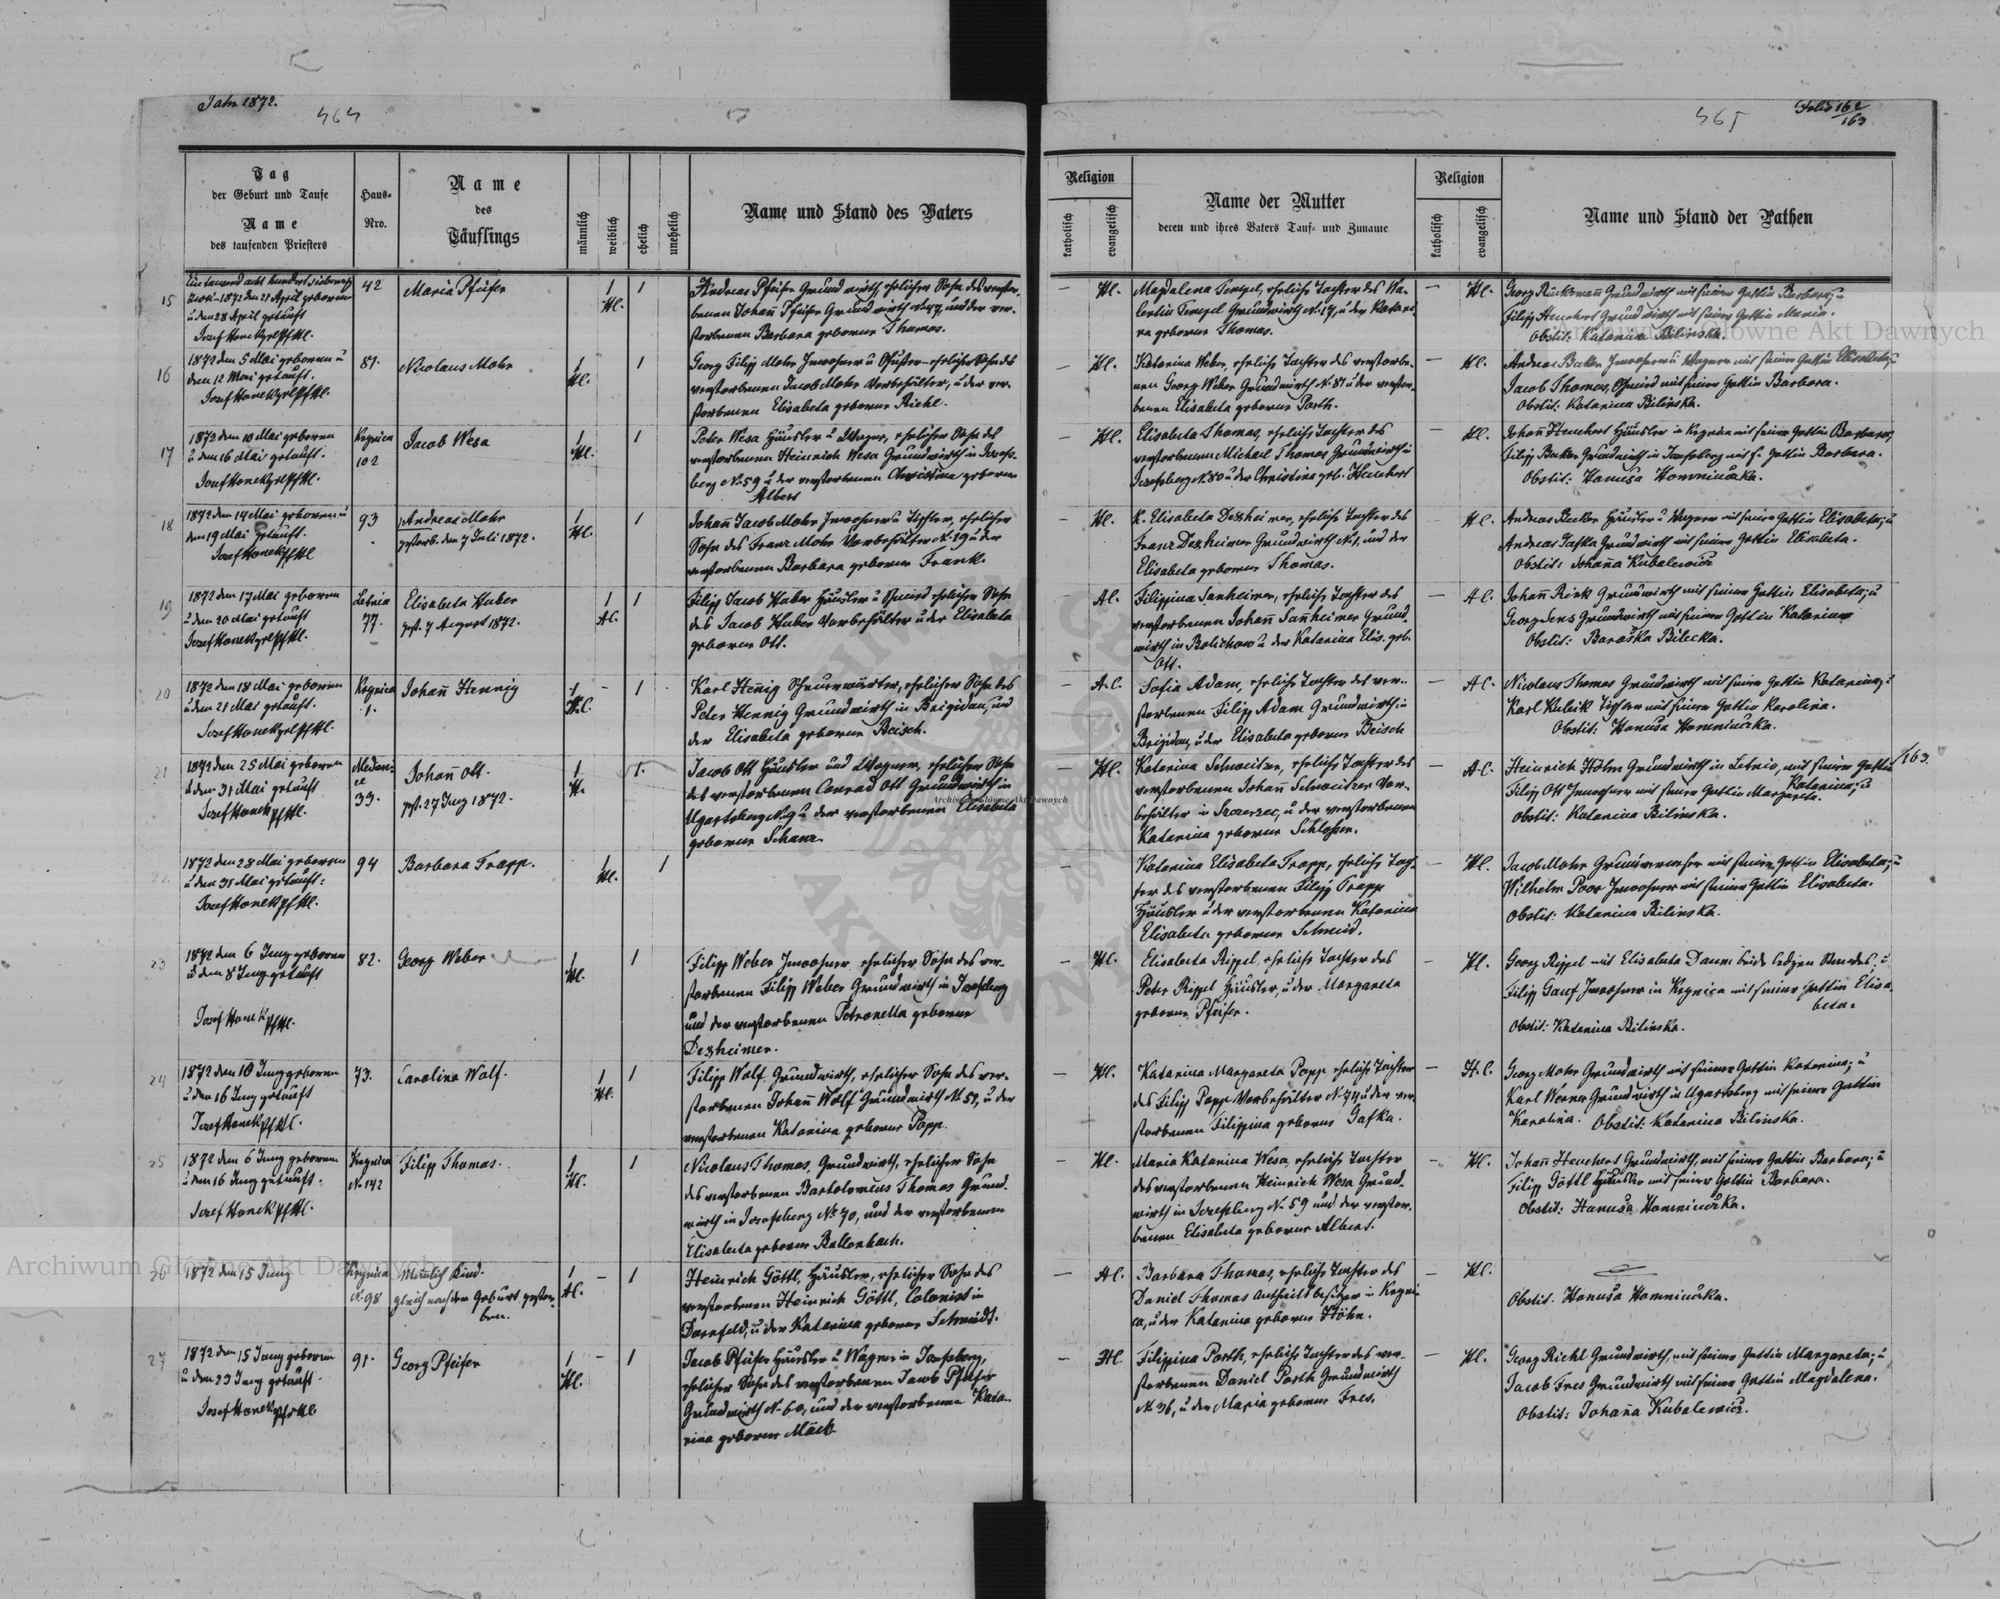 Jahr 1872.
464
465
Folio 162/163
Tag
der Geburt und Taufe
Name
des taufenden Priesters
Haus-
Nro.
Name
des
Täuflings
männlich
weiblich
ehelich
unehelich
Name und Stand des Vaters
Religion
katholisch
evangelisch
Name der Mutter
deren und ihres Vaters Tauf- und Zuname
Religion
katholisch
evangelisch
Name und Stand der Pathen
15
Ein tausend acht hundert siebenzig
zwei 1872 den 21 April geboren
u den 28 April getauft
Josef Hanek
42
Maria Pfeifer
Hl.
Andreas Pfeifer Grundwirth, ehelicher Sohn des verstor-
benen Johañ Pfeifer Grundwirth und der ver-
storbenen Barbara geborne Thomas.
Hl.
Magdalena Tempel, eheliche Tochter des Va-
lentin Tempel Grundwirth N. 17, u der Katari-
na geborne Thomas.
Hl.
Georg Grundwirth mit seiner Gattin Barbara; u
Filipp Heuchert Grundwirth mit seiner Gattin Maria.
Obstit: Katarina Bilinska.
16
1872 den 5 Mai geboren u
den 12 Mai getauft.
Josef Hanek
81.
Nicolaus Mohr
Hl.
Georg Filipp Mohr Inwohner u Schuster ehelicher Sohn des
verstorbenen Jacob Mohr Vorbehälter, u der ver-
storbenen Elisabeta geborne Riehl.
Hl.
Katarina Weber, eheliche Tochter des verstorbe-
nen Georg Weber Grundwirth N. 81 u der verstor-
benen Elisabeta geborne Porth.
Hl.
Andreas Becker Inwohner u Wagner mit seiner Gattin Elisabeta; u
Jacob Thomas, Schmied mit seiner Gattin Barbara.
Obstit: Katarina Bilinska.
17
1872 den 10 Mai geboren
u den 16 Mai getauft.
Josef Hanek
Kognica
102
Jacob Wesa
Hl.
Peter Wesa Häusler u Wagner, ehelicher Sohn des
verstorbenen Heinrich Wesa Grundwirth in Josefs-
berg N. 59 u der verstorbenen Christina geborne
Albert
Hl.
Elisabeta Thomas, eheliche Tochter des
verstorbenen Michael Thomas Grundwirth in
Josefsberg N. 80 u der Christina geb. Heuchert
Hl.
Johañ Heuchert Häusler in Kognica mit seiner Gattin Barbara,
Filipp Becker Grundwirth in Josefsberg mit s. Gattin Barbara.
Obstit: Hanusa Homniučka.
18
1872 den 14 Mai geboren u
den 19 Mai getauft.
Josef Hanek
93
Andreas Mohr
gestorb. den 7 Juli 1872.
Hl.
Johañ Jacob Mohr Inwohner u Tischler, ehelicher
Sohn des Franz Mohr Vorbehälter N. 19 u der
verstorbenen Barbara geborne Frank.
Hl.
K. Elisabeta Dexheimer, eheliche Tochter des
Franz Dexheimer Grundwirth N. 1, und der
Elisabeta geborne Thomas.
Hl.
Andreas Becker Häusler u Wagner mit seiner Gattin Elisabeta; u
Andreas Jafka Grundwirth mit seiner Gattin Elisabeta.
Obstit: Johaña Kubalewicz
19
1872 den 17 Mai geboren
u den 20 Mai getauft
Josef Hanek
Letnia
77.
Elisabeta Huber
gest. 7 August 1872.
Al.
Filipp Jacob Huber Häusler u Schmied ehelicher Sohn
des Jacob Huber Vorbehälter u der Elisabeta
geborne Ott.
Al.
Filippina Sanheimer, eheliche Tochter des
verstorbenen Johañ Sanheimer Grund-
wirth in Bolichow u der Katarina Elis. geb.
Ott.
A.C.
Johañ Rink Grundwirth mit seiner Gattin Elisabeta; u
Georg Jens Grundwirth mit seiner Gattin Katarina
Obstit: Baraška Bilecka.
20
1872 den 18 Mai geboren
u den 21 Mai getauft.
Josef Hanek
Kognica
1.
Johañ Hennig
H.C.
Karl Heñig Scheuerwärter, ehelicher Sohn des
Peter Hennig Grundwirth in Brigidau, und
der Elisabeta geborne Beisch.
A.C.
Sofia Adam, eheliche Tochter des ver-
storbenen Filipp Adam Grundwirth in
Brigidau, u der Elisabeta geborne Beisch
A.C.
Nicolaus Thomas Grundwirth mit seiner Gattin Katarina; u
Karl Kubik Tischler mit seiner Gattin Karolina.
Obstit: Hanusa Homniučka.
21
1872 den 25 Mai geboren
u den 31 Mai getauft
Josef Hanek
Medeni-
ce
33.
Johañ Ott.
gest. 27 Juny 1872.
Jacob Ott Häusler und Wagner, ehelicher Sohn
des verstorbenen Conrad Ott Grundwirth in
Ugartsberg N. 9 u der verstorbenen Elisabeta
geborne Schanz.
Hl.
Katarina Schweitzer, eheliche Tochter des
verstorbenen Johañ Schweitzer Vor-
behälter in Szczerzec, u der verstorbenen
Katarina geborne Schlosser.
A.C.
Heinrich Höhn Grundwirth in Letnia, mit seiner Gattin
Katarina; u
Filipp Ott Inwohner mit seiner Gattin Margareta.
Obstit: Katarina Bilinska.
/163.
22
1872 den 28 Mai geboren
u den 31 Mai getauft:
Josef Hanek
94
Barbara Trapp.
Hl.
Katarina Elisabeta Trapp, eheliche Toch-
ter des verstorbenen Filipp Trapp
Häusler u der verstorbenen Katarina
Elisabeta geborne Schmid.
Hl.
Jacob Mohr mit seiner Gattin Elisabeta; u
Wilhelm Poor Inwohner mit seiner Gattin Elisabeta.
Obstit: Katarina Bilinska.
23
1872 den 6 Juny geboren
u den 8 Juny getauft
Josef Hanek
82.
Georg Weber
Hl.
Filipp Weber Inwohner ehelicher Sohn des ver-
storbenen Filipp Weber Grundwirth in Josefsberg
und der verstorbenen Petronella geborne
Dexheimer.
Hl.
Elisabeta Rippel, eheliche Tochter des
Peter Rippel Häusler, u der Margareta
geborne Pfeifer.
Hl.
Georg Rippel mit Elisabeta Daum beide ledigen Standes. u
Filipp Gauf Inwohner in Kognica mit seiner Gattin Elisa-
beta.
Obstit: Katarina Bilinska.
24
1872 den 10 Juny geboren
u den 16 Juny getauft
Josef Hanek
73.
Carolina Wolf.
Hl.
Filipp Wolf Grundwirth, ehelicher Sohn des ver-
storbenen Johañ Wolf Grundwirth N. 51, u der
verstorbenen Katarina geborne Popp.
Hl.
Katarina Margareta Popp eheliche Tochter
des Filipp Popp Vorbehälter u der ver-
storbenen Filippina geborne Jafka.
H.C.
Georg Mohr Grundwirth mit seiner Gattin Katarina; u
Karl Werner Grundwirth in Ugartsberg mit seiner Gattin
Karolina. Obstit: Katarina Bilinska.
25
1872 den 6 Juny geboren
u den 16 Juny getauft.
Josef Hanek
Kognica
N. 142
Filipp Thomas.
Hl.
Nicolaus Thomas, Grundwirth, ehelicher Sohn
des verstorbenen Bartolomeus Thomas Grund-
wirth in Josefsberg N. 70, und der verstorbenen
Elisabeta geborne Bollenbach.
Hl.
Maria Katarina Wesa, eheliche Tochter
des verstorbenen Heinrich Wesa Grund-
wirth in Josefsberg N. 59 und der verstor-
benen Elisabeta geborne Albert.
Hl.
Johañ Heuchert Grundwirth, mit seiner Gattin Barbara; u
Filipp Göttl Häusler mit seiner Gattin Barbara.
Obstit: Hanusa Homniučka.
26
1872 den 15 Juny
Kognica
N. 98
Mänlich Kind.
gleich nach der Geburt gestor-
ben.
Al.
Heinrich Göttl, Häusler, ehelicher Sohn des
verstorbenen Heinrich Göttl, Colonist in
Dornfeld, u der Katarina geborne Schmidt.
Al.
Barbara Thomas, eheliche Tochter des
Daniel Thomas Antheilsbesitzer in Kogni-
ca, u der Katarina geborne Höhn.
Hl.
Obstit. Hanusa Homniučka.
27
1872 den 15 Juny geboren
u den 23 Juny getauft.
Josef Hanek
91.
Georg Pfeifer
Hl.
Jacob Pfeifer Häusler u Wagner in Josefsberg,
ehelicher Sohn des verstorbenen Jacob Pfeifer
Grundwirth N. 60, und der verstorbenen Kata-
rina geborne Mäck
Hl.
Filippina Porth, eheliche Tochter des ver-
storbenen Daniel Porth Grundwirth
N. 36, u der Maria geborne Fres.
Hl.
Georg Riehl Grundwirth, mit seiner Gattin Margareta; u
Jacob Fres Grundwirth mit seiner Gattin Magdalena.
Obstit: Johaña Kubalewicz.
Archiwum Główne Akt Dawnych
Archiwum Główne Akt Dawnych
Archiwum Główne Akt Dawnych